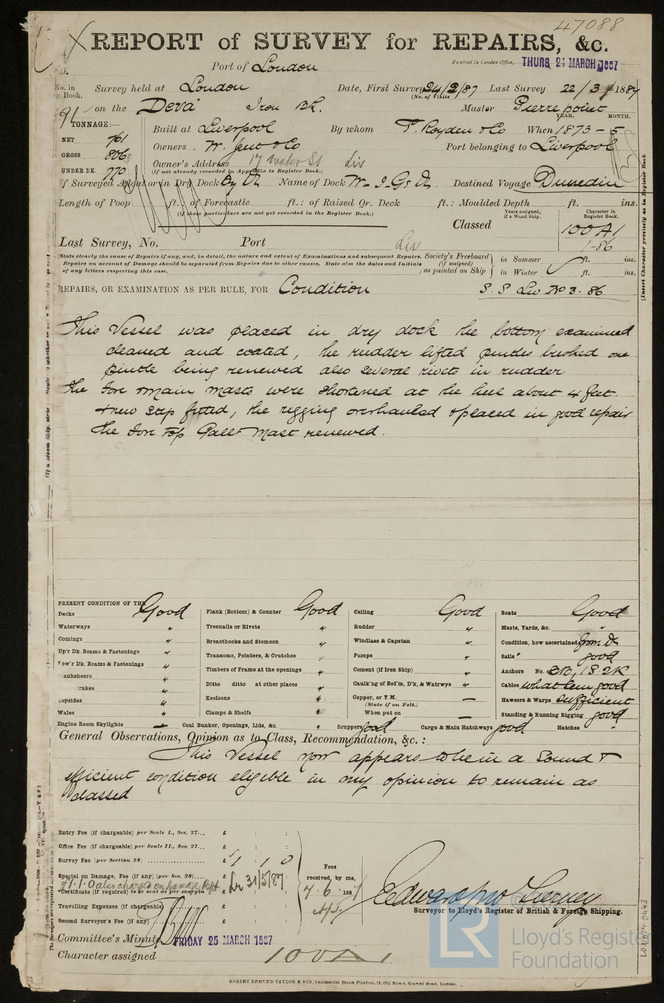 47088
REPORT of SURVEY for REPAIRS, &c.
Port of London
Received in London Office, THURS 24 MARCH 1887
No. in Survey held at London Date, First Survey 24/2/87 Last Survey 22/3/1887
Book. (No. of Visits
on the "Deva" Iron Bk. Master Pierrepoint
TONNAGE:— YEAR. MONTH.
NET 761 Built at Liverpool By whom T. Royden & Co When 1873 - 5
GROSS Owners W. Just & Co Port belonging to Liverpool
UNDER DK. 770 Owner's Address 17 Water St Liv
(If not already recorded in Appendix to Register Book.)
If Surveyed Afloat or in Dry Dock Name of Dock Destined Voyage Dunedin
Length of Poop ft. of Forecastle ft.: of Raised Qr. Deck ft.: Moulded Depth ft. ins.
(If these particulars are not yet recorded in the Register Book.)
Years assigned, if a Wood Ship. Character in Register Book.
Classed 100 A1
1-86
Last Survey, No. Port Liv
State clearly the cause of Repairs if any, and, in detail, the nature and extent of Examinations and subsequent Repairs.
Repairs on account of Damage should be separated from Repairs due to other causes. State also the dates and Initials
of any letters respecting this case.
Society's Freeboard (if assigned) as painted on Ship
in Summer ft. ins.
in Winter ft. ins.
REPAIRS, OR EXAMINATION AS PER RULE, FOR Condition S. S Liv No 3. 86
This Vessel was placed in dry dock the bottom examined
cleaned and coated, the rudder lifted pintles bushed one
pintle being renewed also several rivets in rudder
the fore main masts were shortened at the heel about 4 feet.
& new step fitted, the rigging overhauled & placed in good repair
the fore top Gallt mast renewed.
PRESENT CONDITION OF THE
Decks Good
Waterways "
Comings "
Up'r Dk. Beams & Fastenings "
Low'r Dk. Beams & Fastenings "
Plank (Bottom) & Counter Good
Treenails or Rivets "
Breasthooks and Stemson "
Transoms, Pointers, & Crutches "
Timbers of Frame at the openings "
Ditto ditto at other places "
Keelsons "
Clamps & Shelfs "
Ceiling Good
Rudder "
Windlass & Capstan "
Pumps "
Cement (if Iron Ship) "
Caulk'ng of Bot'm, D'k, & Watrw'ys "
Copper, or Y.M. —
(State if on Felt.)
When put on —
Boats Good
Masts, Yards, &c. "
Condition, how ascertained from Dk
Sails good
Anchors No. 3B, 1S 2K
Cables what seen good
Hawsers & Warps sufficient
Standing & Running Rigging good
Topsides "
Wales "
Engine Room Skylights — Coal Bunker, Openings, Lids, &c. " Scuppers good Cargo & Main Hatchways good Hatches "
General Observations, Opinion as to Class, Recommendation, &c.:
This Vessel now appears to be in a Sound &
efficient condition eligible in my opinion to remain as
classed
Entry Fee (if chargeable) per Scale I., Sec. 27... £
Office Fee (if chargeable) per Scale II., Sec. 27... £
Survey Fee (per Section 28) £ 1 1 0
Special or Damage, Fee (if any) (per Sec. 28) £
Certificate (if required) to be sent as per margin
Travelling Expenses (if chargeable) £
Second Surveyor's Fee (if any) £
Fees received by me,
7.6.1887
Surveyor to Lloyd's Register of British & Foreign Shipping.
Committee's Minute FRIDAY 25 MARCH 1887
Character assigned 100 A1
ROBERT EDMUND TAYLOR & SON, Commercial Steam Printers, 19, Old Street, Goswell Road, London.
LR
©
Lloyd's Register
Foundation